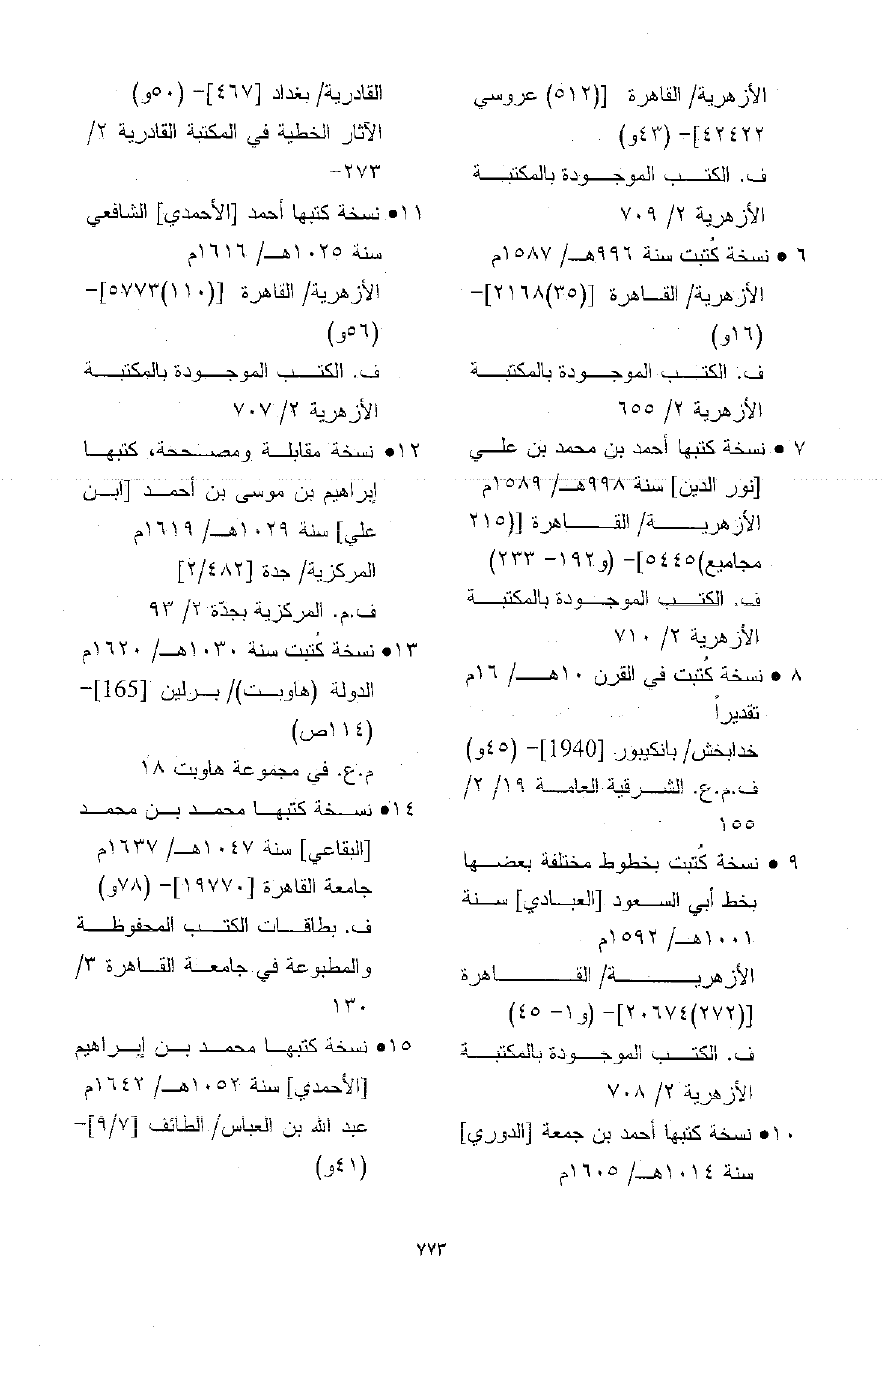 الأزهرية/ القاهرة [(٥١٢) عروسي
٤٢٤٢٢]- (٤٣و)
ف. الكتب الموجودة بالمكتبة
الأزهرية ٢/ ٧٠٩
٦ • نسخة كُتبت سنة ٩٩٦هـ/ ١٥٨٧م
الأزهرية/ القاهرة [(٣٥)٢١٦٨]-
(١٦و)
ف. الكتب الموجودة بالمكتبة
الأزهرية ٢/ ٦٥٥
٧ • نسخة كتبها أحمد بن محمد بن علي
[نور الدين] سنة ٩٩٨هـ/ ١٥٨٩م
الأزهرية/ القاهرة [(٢١٥
مجاميع)٥٤٤٥]- (و١٩٢- ٢٣٣)
ف. الكتب الموجودة بالمكتبة
الأزهرية ٢/ ٧١٠
٨ • نسخة كُتبت في القرن ١٠هـ/ ١٦م
تقديراً
خدابخش/ بانكيبور [1940]- (٤٥و)
ف.م.ع. الشرقية العامة ١٩/ ٢/
١٥٥
٩ • نسخة كُتبت بخطوط مختلفة بعضها
بخط أبي السعود [العبادي] سنة
١٠٠١هـ/ ١٥٩٢م
الأزهرية/ القاهرة
[(٢٧٢)٢٠٦٧٤]- (و١- ٤٥)
ف. الكتب الموجودة بالمكتبة
الأزهرية ٢/ ٧٠٨
١٠• نسخة كتبها أحمد بن جمعة [الدوري]
سنة ١٠١٤هـ/ ١٦٠٥م
القادرية/ بغداد [٤٦٧]- (٥٠و)
الآثار الخطية في المكتبة القادرية ٢/
٢٧٣-
١١• نسخة كتبها أحمد [الأحمدي] الشافعي
سنة ١٠٢٥هـ/ ١٦١٦م
الأزهرية/ القاهرة [(١١٠)٥٧٧٣]-
(٥٦و)
ف. الكتب الموجودة بالمكتبة
الأزهرية ٢/ ٧٠٧
١٢• نسخة مقابلة ومصححة، كتبها
إبراهيم بن موسى بن أحمد [ابن
علي] سنة ١٠٢٩هـ/ ١٦١٩م
المركزية/ جدة [٢/٤٨٢]
ف.م. المركزية بجدّة ٢/ ٩٣
١٣• نسخة كُتبت سنة ١٠٣٠هـ/ ١٦٢٠م
الدولة (هاوبت)/ برلين [165]-
(١١٤ص)
م.ع. في مجموعة هاوبت ١٨
١٤• نسخة كتبها محمد بن محمد
[البقاعي] سنة ١٠٤٧هـ/ ١٦٣٧م
جامعة القاهرة [١٩٧٧٠]- (٧٨و)
ف. بطاقات الكتب المحفوظة
والمطبوعة في جامعة القاهرة ٣/
١٣٠
١٥• نسخة كتبها محمد بن إبراهيم
[الأحمدي] سنة ١٠٥٢هـ/ ١٦٤٢م
عبد الله بن العباس/ الطائف [٩/٧]-
(٤١و)
٧٧٣